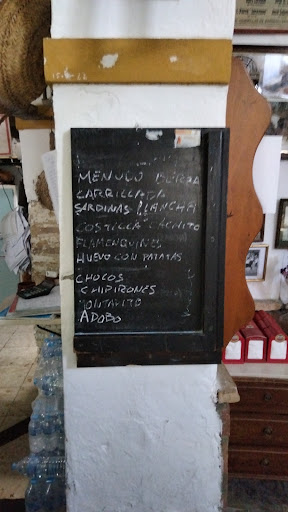 MENUDO BERZA
CARRILLADA
SARDINAS PLANCHA
COSTILLA COCHITO
FLAMENQUINES
HUEVO CON PATATAS
CHOCOS
CHIPIRONES
MONTADITO
ADOBO